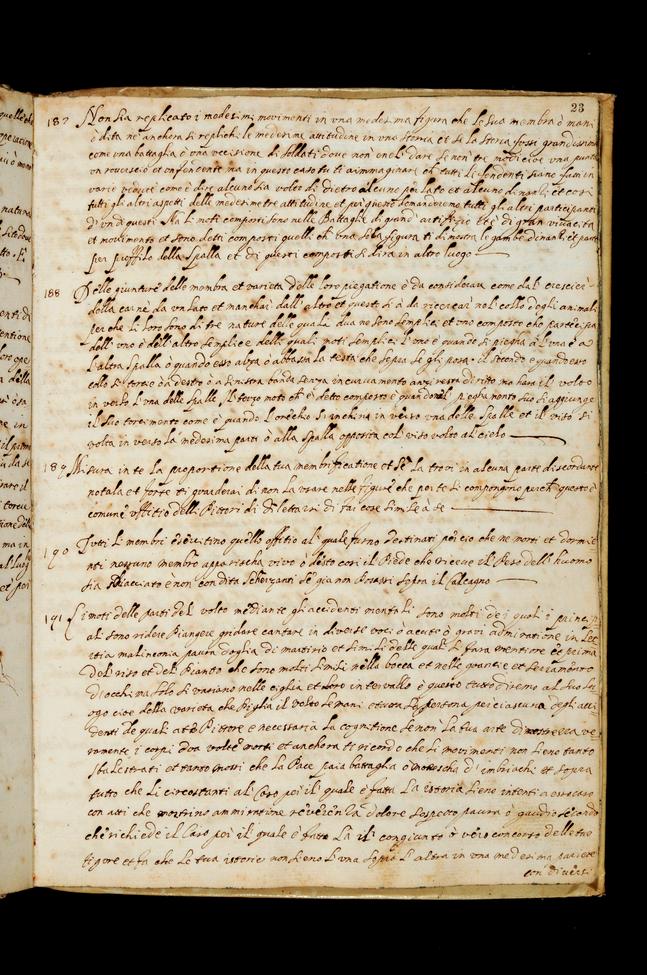 23
187 Non sia replicato i medesimi movimenti in una medesima figura che le sua membra o mani
o dita ne anchora si replichi le medesime attitudine in una storia et se la storia fosse grandissima
come una battaglia o una uccisione di soldati dove non e nel dare se non tre modi cioe una punta
un rovescio et un fendente ma in questo caso tu ti ai immaginare che tutti li fendenti siano fatti in
varie vedute come e dire alcuno sia volto di dietro alcuno per lato et alcuno dinanzi et cosi
tutti gli altri aspetti delle medesime tre attitudine et per questo dimanderemo tutti gli altri participanti
di una questi. Ma li moti composti sono nelle Battaglie di grand' artifitio et e di gran vivacita
et movimento et sono detti composti quelli che una sola figura ti dimostra le gambe dinanzi et parte
per proffilo della spalla et di questi composti si dira in altro luogo
188 Delle giunture delle membra et varieta delle loro piegatione e da considerare come dal crescier
della carne da un lato et manchar dall' altro et questo si a da ricercar nel collo degli animali
perche li loro sono di tre nature delle quale dua ne sono semplice et uno composto che participa
dell' uno e dell' altro semplice delli quali moti semplici l'uno e quando si piegha a l'una e a
l'altra spalla o quando esso alza o abbassa la testa che sopra se gli posa. il secondo e quando esso
collo si torce o a destro o a sinistra banda senza incurvamento anzi resta diritto ma hara il volto
in verso l'una delle spalle, il terzo moto che e detto composto e quando nel pieghamento suo si aggiunge
il suo torcimento come e quando l'orechio s'inchina in verso una delle spalle et il viso si
volta in verso la medesima parte o alla spalla opposita col viso volto al cielo
189 Misura in te la proportione della tua membrificatione et se la trovi in alcuna parte discordante
notala et forte ti guarderai di non la usare nelle figure che per te si compongano perche questo e
comune vitio delli Pittori di dilettarsi di far cose simile a se
190 Tutti li membri esercitino quello offitio al quale furno destinati per cio che ne morti et dormi
nti nessuno membro apparischa vivo o desto cosi il Piede che riceve il Peso dell' huomo
sia schiacciato e non con dita scherzanti se gia non posassi sopra il calcagno
191 Li moti delle parti del volto mediante gli accidenti mentali sono molti de i quali i princip
ali sono ridere Piangere gridare cantare in diverse voci o acute o gravi admiratione ira Let
itia malinconia paura doglia di martirio et simili delle quali si fara mentione et prima
del riso et del Pianto che sono molti simili nella bocca et nelle guancie et serramento
d'occhi ma solo si variano nelle ciglia et loro intervallo e questo tutto diremo al suo lu
ogo cioe della varieta che piglia il volto le mani et tutta la persona per ciascuna degli acci
denti de quali a te Pittore e necessaria la cognitione se non la tua arte dimosterra ve
ramente i corpi dua volte morti et anchora ti ricordo che li movimenti non sieno tanto
sbalestrati et tanto mossi che la Pace paia battaglia o moresca d'imbriachi et sopra
tutto che li circostanti al Caso per il quale e fatta la istoria sieno intenti a esso caso
con atti che mostrino ammiratione reverenza dolore sospetto paura o gaudio secondo
che richiede il Caso per il quale e fatta la il congiunto o vero concorso delle tue
figure et fa che le tua istorie non sieno l'una sopra l'altra in una medesima pariete
con diversi